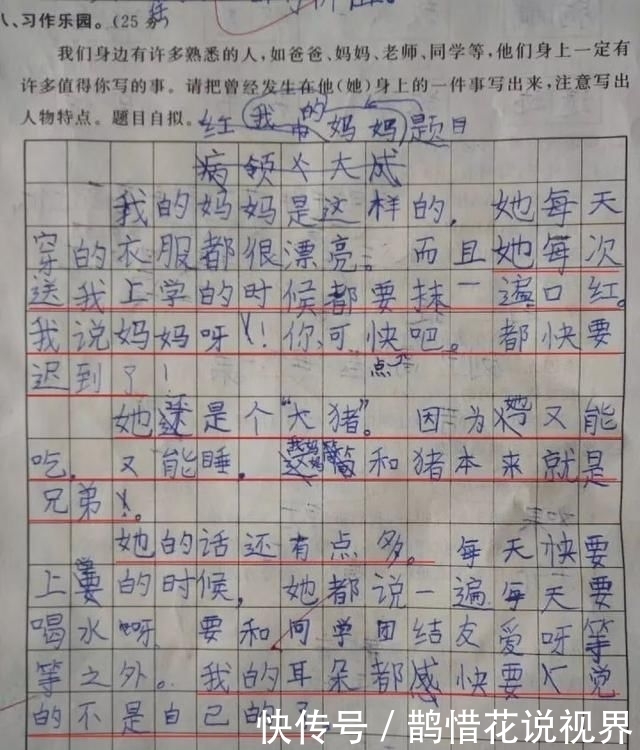 八、习作乐园。(25分)
我们身边有许多熟悉的人,如爸爸、妈妈、老师、同学等,他们身上一定有
许多值得你写的事。请把曾经发生在他(她)身上的一件事写出来,注意写出
人物特点。题目自拟。红我的妈妈题目
病领义大成
我的妈妈是这样的,她每天
穿的衣服都很漂亮。而且她每次
送我上学的时候都要抹一遍口红。
我说妈妈呀!你可快点吧。都快要
迟到了!
她还是个“大猪”。因为她又能
吃,又能睡。我妈妈简和猪本来就是
兄弟。
她的话还有点多。每天快要
上学的时候,她都说一遍每天要
喝水呀要和同学团结友爱呀等
等之外。我的耳朵都感快要觉
的不是自己的了
快传号/鹊惜花说视界